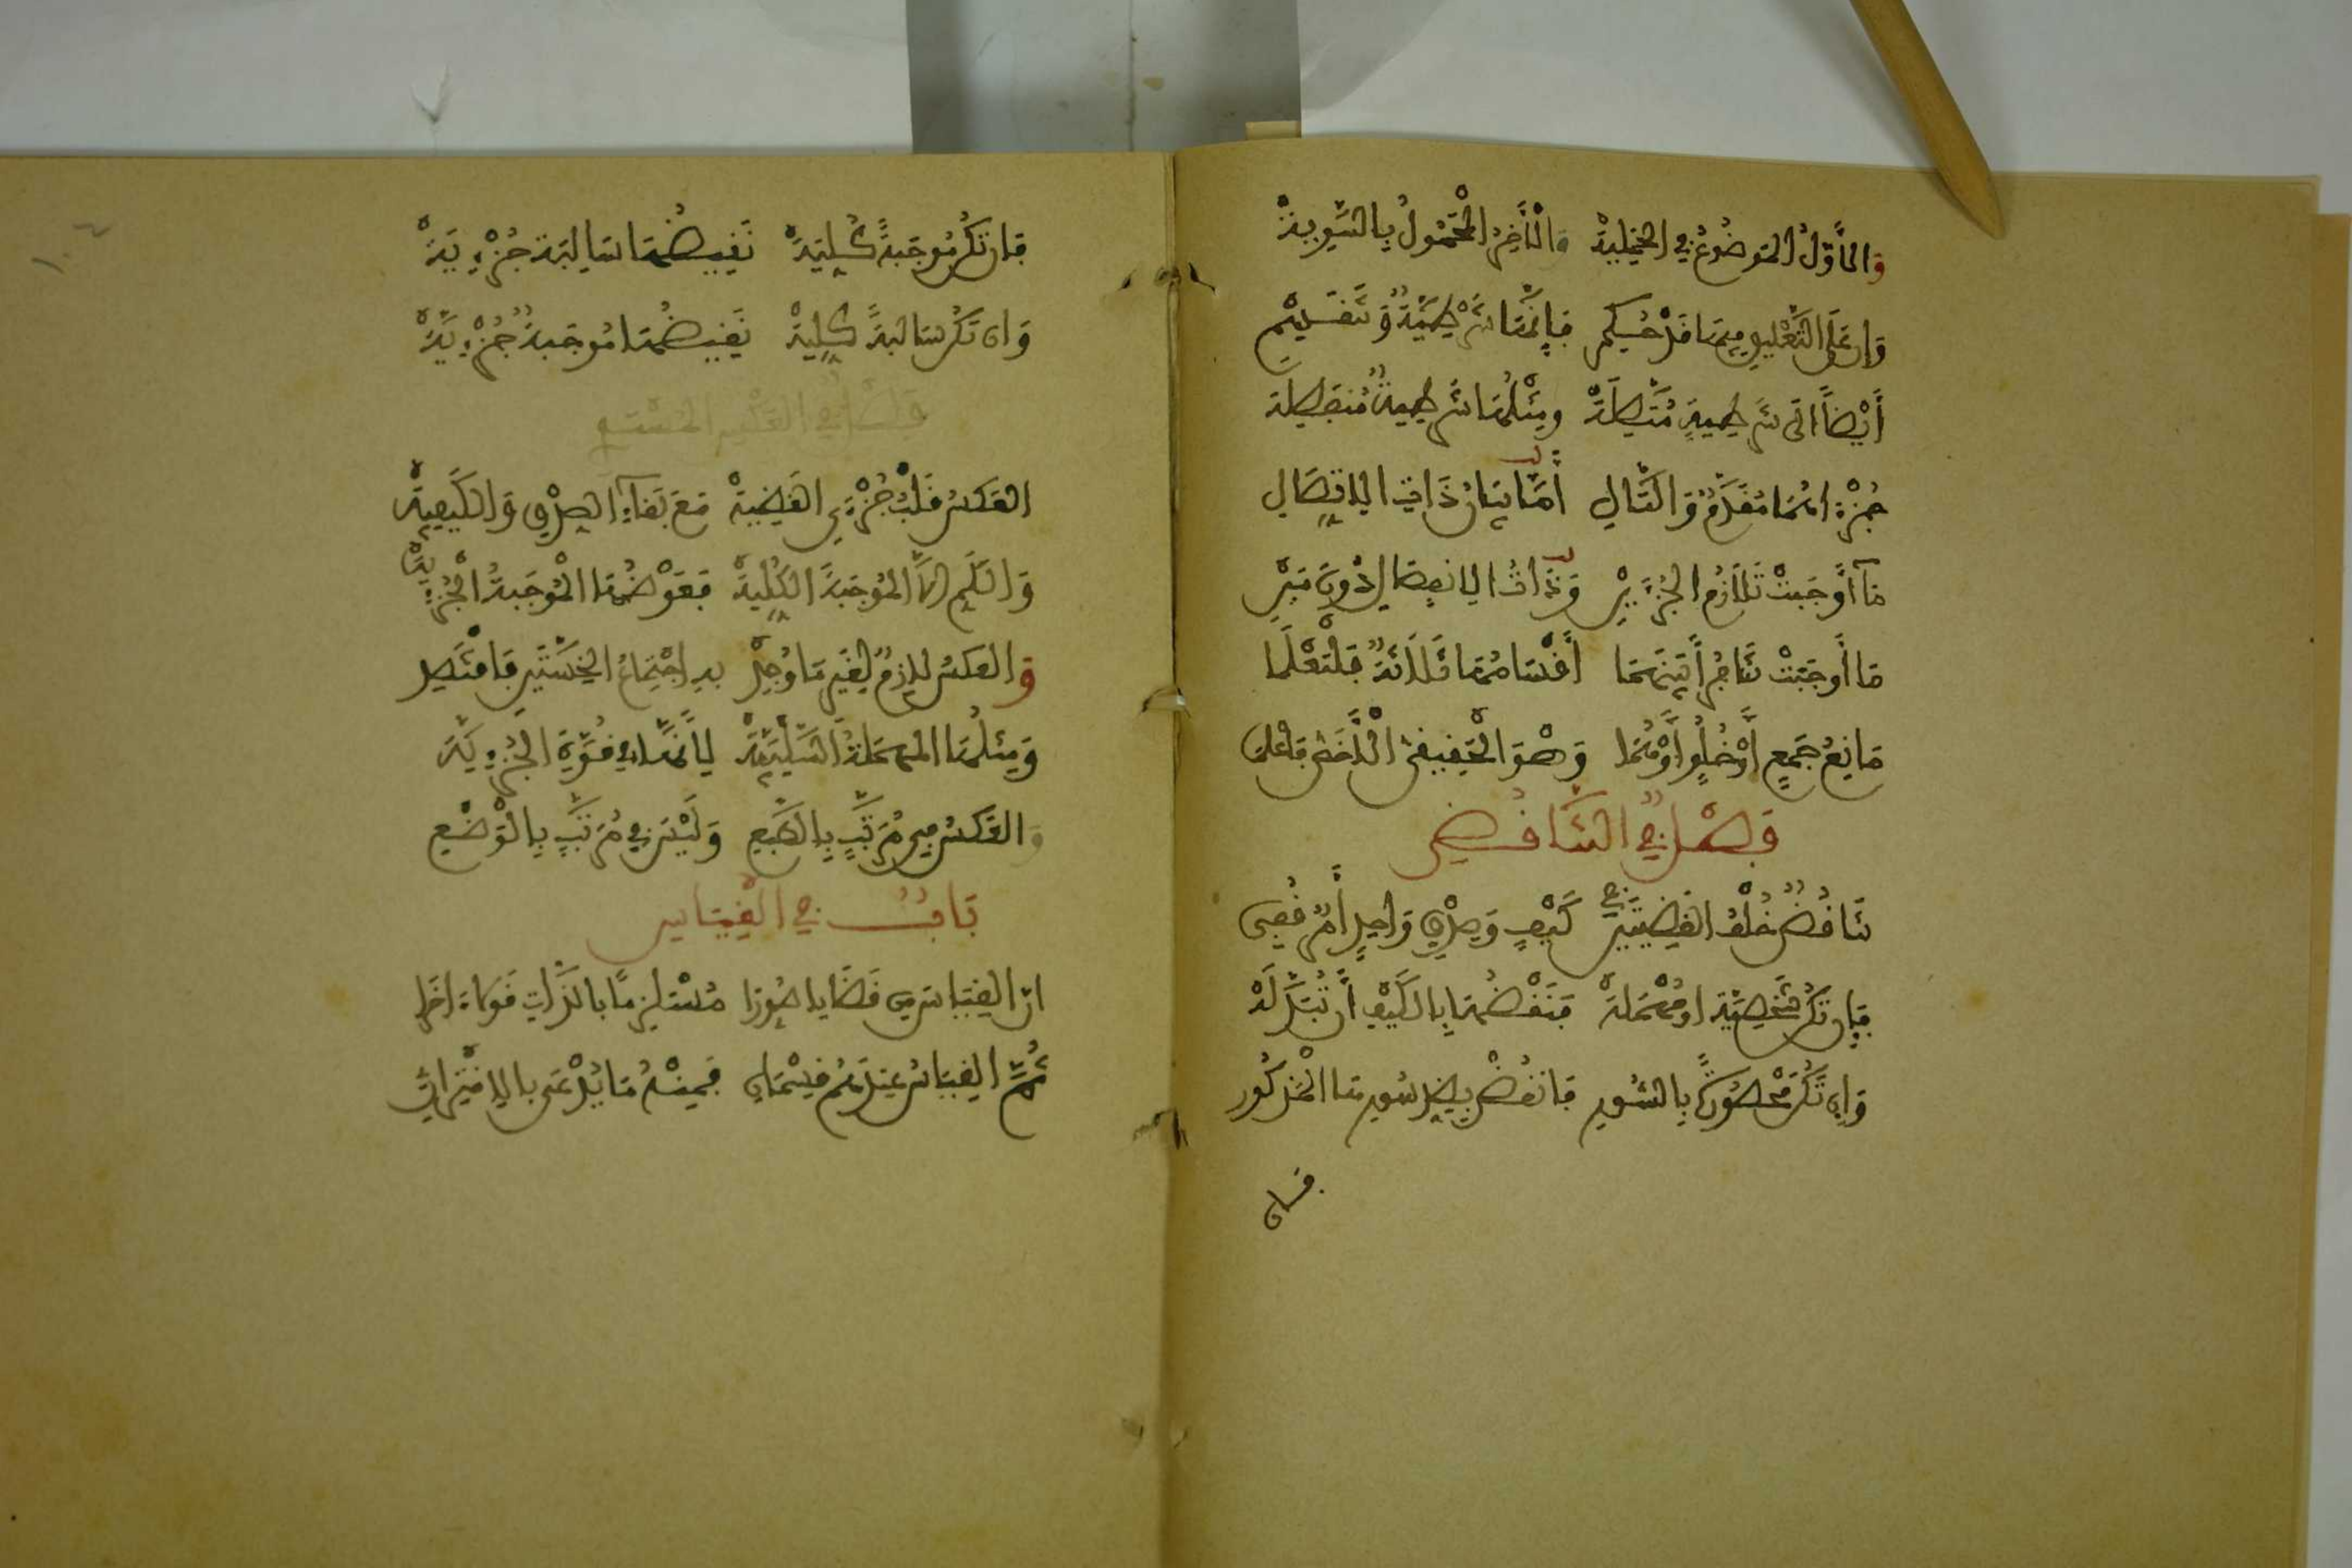 وَالأَوَّلُ المَوضُوعُ فِي الحَمْلِيَّةْ وَالْآخِرُ الْمَحْمُولُ بِالسَّوِيَّةْ
وَإِن عَلَى التَّعْلِيقِ فِيهَا قَدْ حُكِم فَإِنَّهَا شَرْطِيَّةٌ وَتَنْقَسِمْ
أَيْضًا الَى شَرْطِيَةٍ مُتَّصِلَةْ وَمِثْلُهَا شَرْطِيةٌ مُنفَصِلَة
جُزْءَاهُمَا مُقَدَّمٌ وَالتَّالِي أَمَّا بَيَانُ ذَاتِ الاتِّصَالِ
مَا أَوْجَبَتْ تَلَازُمَ الجُزْءَيْنِ وَذَاتُ الانفِصَالِ دُونَ مَيْنِ
مَا أَوجَبَتْ تَنَافُرًا بَيْنَهُمَا أَقْسَامُهَا ثَلَاثَةٌ فَلْتَعْلَمَا
مَانِعُ جَمْعٍ أَوْ خُلُوٍّ أَوْ هُمَا وَهْوَ الحَقِيقِي الْأَخَصُّ فَاعْلَمَا
فَصْلٌ فِي التَّنَاقُضِ
تَنَاقُضٌ خُلْفُ القَضِيَّتَيْنِ فِي كَيْفٍ وَصِدْقِ وَاحِدٍ أَمْرٌ قُفِي
فَإِن تَكُنْ شَخْصِيَّة او مُهْمَلَةْ فَنَقْضُهَا بِالكَيْفِ أَن تُبَدِّلَهْ
وَإِن تَكُنْ مَحْصُورَةً بِالسُّورِ فَانقُضْ بِضِدِّ سُورِهَا المَذكُورِ
فَإِن
فَإِن تَكُنْ مُوجَبَةً كُلِيَّةْ نَقِيضُهَا سَالِبَة جُزْءِيَّةْ
وَإِن تَكُنْ سَالِبَةً كُلِيَّةْ نَقِيضُهَا مُوجَبَةٌ جُزْءِيَّةْ
فَصْلٌ فِي العَكْسِ المُسْتَوِي
العَكْسُ قَلْبُ جُزْءَيِ القَضِيَّةْ مَعَ بَقَاءِ الصِّدْقِ وَالكَيْفِيَّةْ
وَالكَمِّ الَّا المُوجَبَةَ الكُلِّيَّةْ فَعَوْضُهَا الْمُوجَبَةُ الْجُزْءِيَّةْ
وَالعَكْسُ لَازِمٌ لِغَيْرِ مَا وُجِدْ بِهِ اجْتِمَاعُ الخِسَّتَيْنِ فَاقْتَصِد
وَمِثْلُهَا المُهْمَلَةُ السَّلْبِيَّةْ لِأَنَّهَا فِي قُوَّةِ الجُزْءِيَّةْ
وَالعَكْسُ فِي مُرَتَّبٍ بِالطَّبْعِ وَلَيْسَ فِي مُرَتَّبٍ بِالْوَضْعِ
بَابٌ فِي القِيَاسِ
إنّ القِيَاسَ مِن قَضَايَا صُوِّرَا مُسْتَلْزِمًا بِالذَّاتِ قَوْلًا آخَرَا
ثُمَّ القِيَاسُ عِندَهُمْ قِسْمَانِ فَمِنْهُ مَا يُدْعَى بِالاِقْتِرَانِ